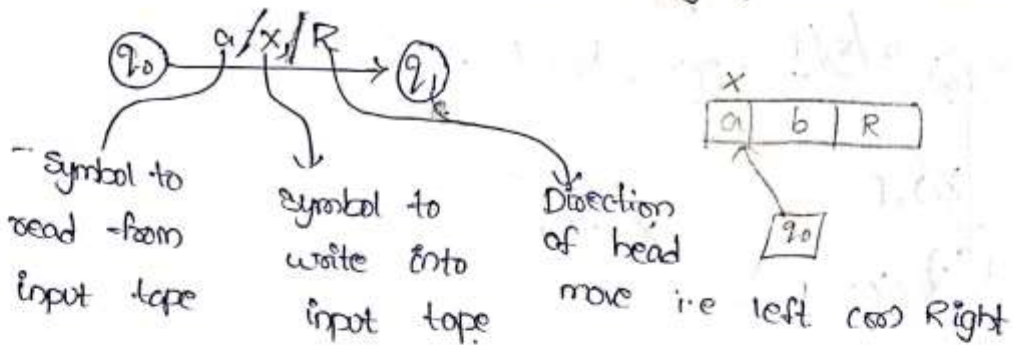 q0 a/x,/R q1
x
a b R
q0
- Symbol to
read from
input tape
symbol to
write into
input tape
Direction
of head
move i.e left (or) Right